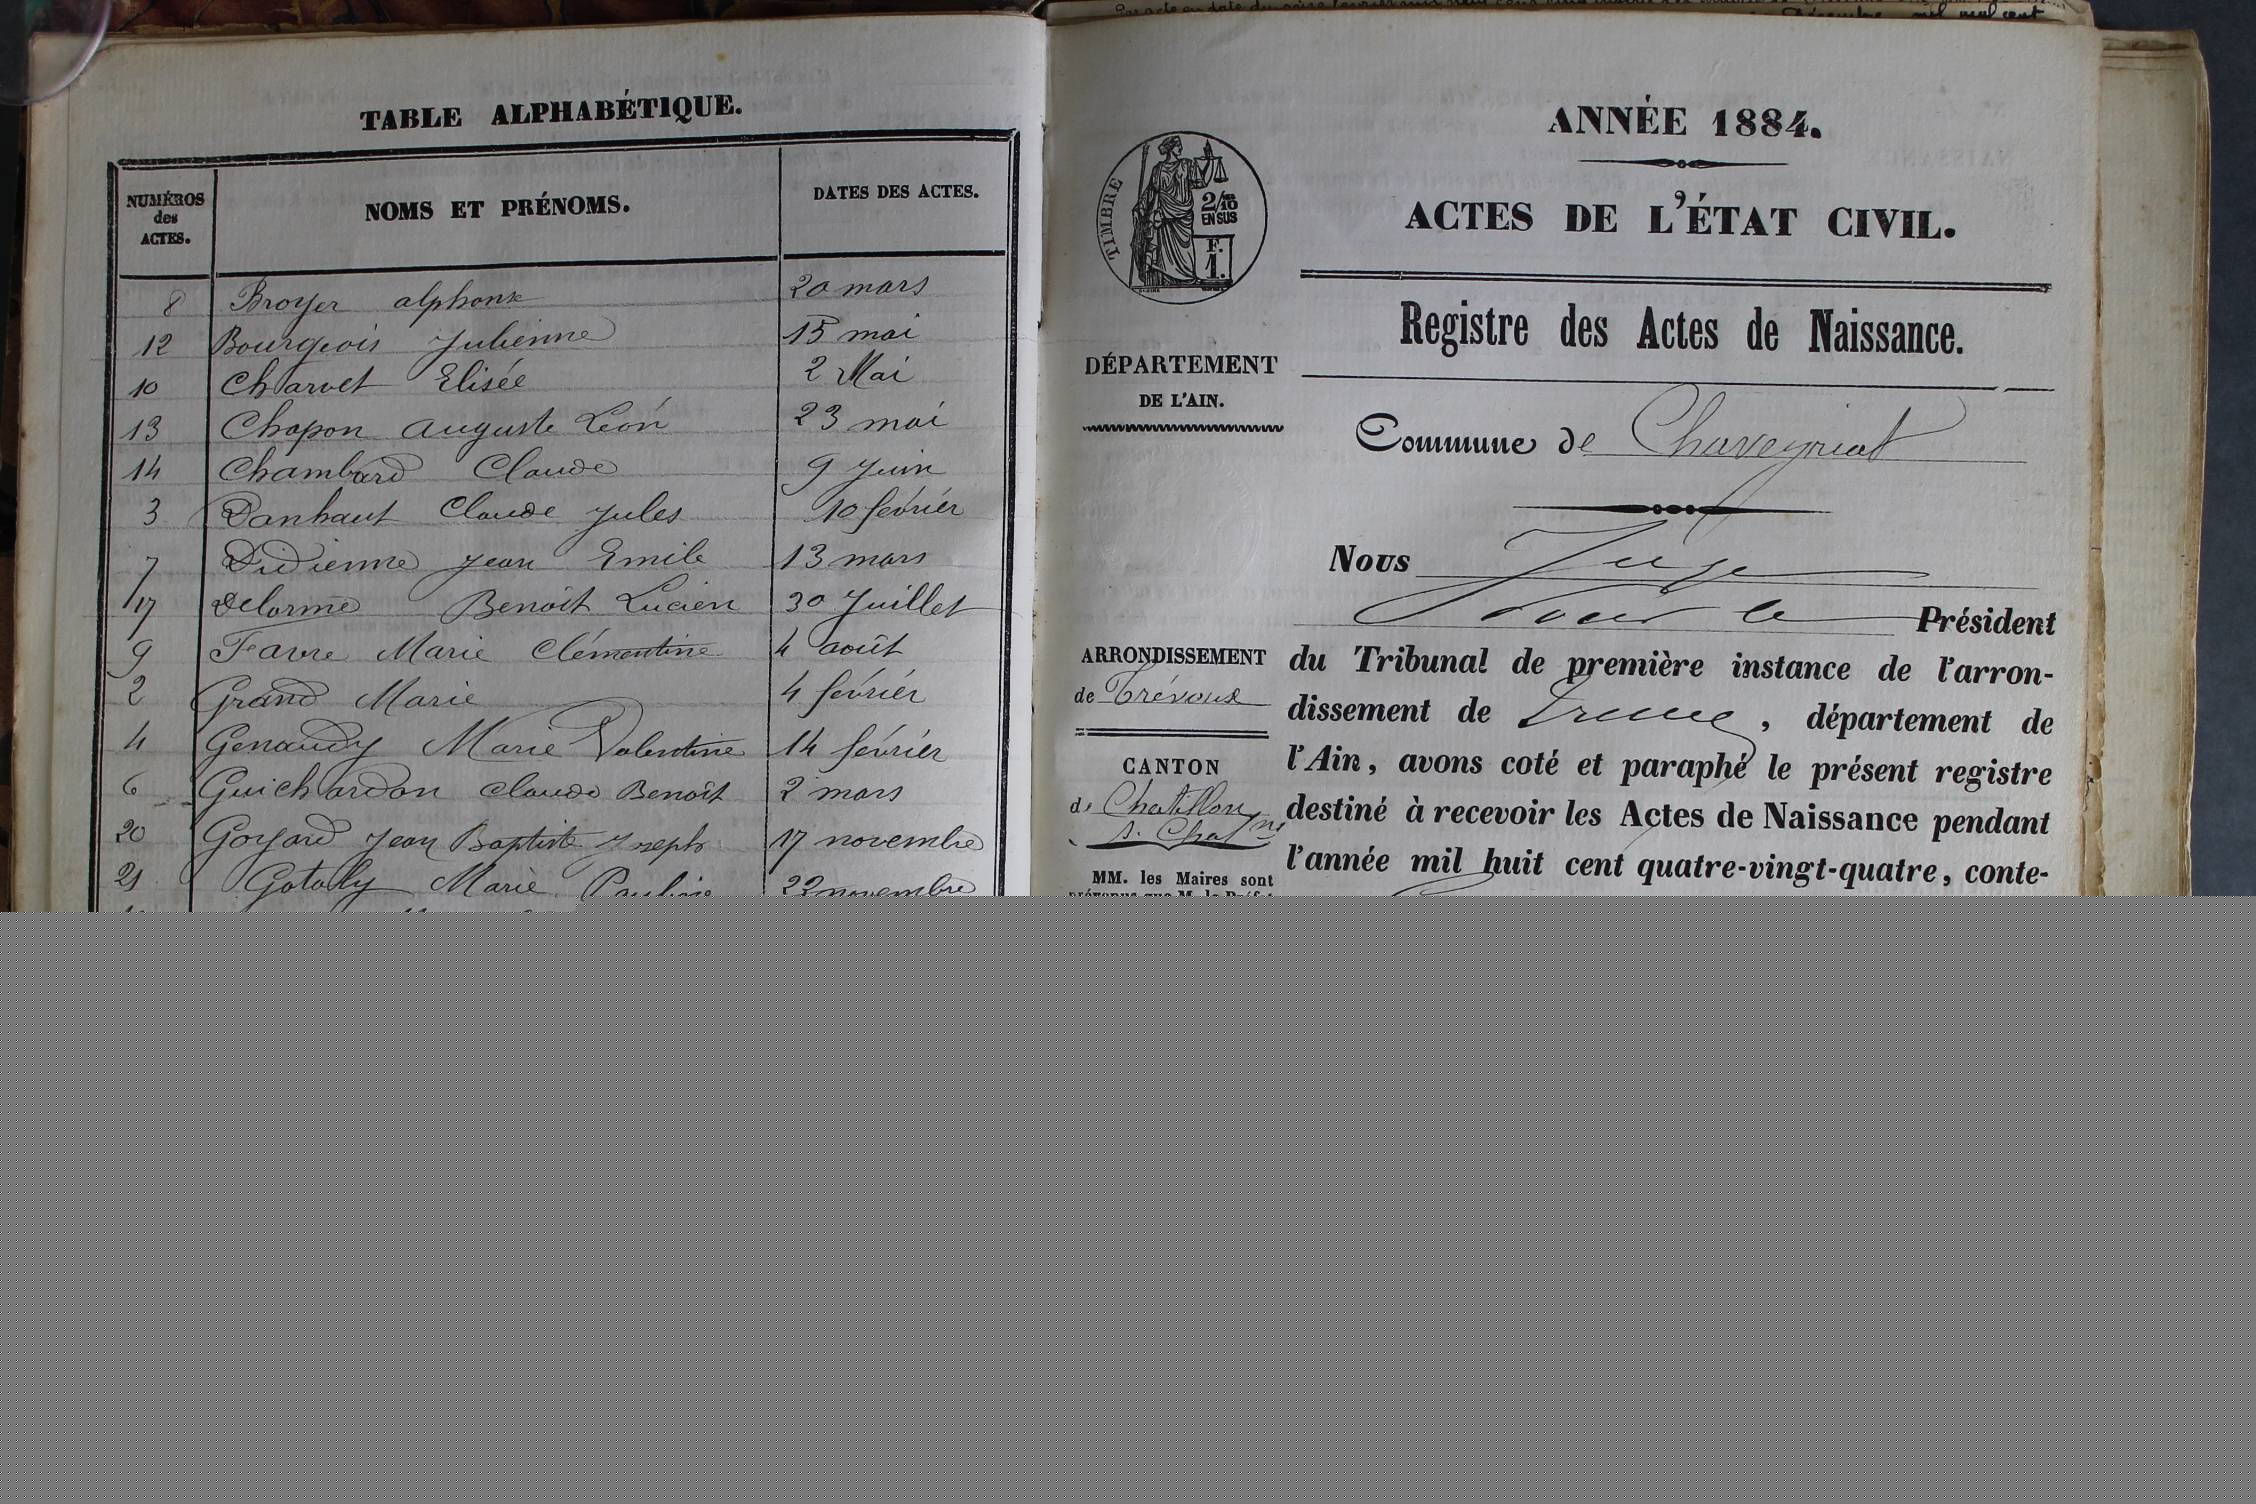 TABLE ALPHABÉTIQUE.
NUMÉROS des ACTES. NOMS ET PRÉNOMS. DATES DES ACTES.
8 Broyer alphonse 20 mars
12 Bourgeois Julienne 15 mai
10 Charvet Elisée 2 Mai
13 Chapon auguste Léon 23 mai
14 Chambard Claude 9 Juin
3 Danhaut Claude Jules 10 février
7 Didienne Jean Emile 13 mars
17 Delorme Benoît Lucien 30 Juillet
9 Favre Marie Clémentine 4 août
2 Grand Marie 4 février
4 Genaudy Marie Valentine 14 février
6 Guichardon Claude Benoît 2 mars
20 Goyard Jean Baptiste Joseph 17 novembre
21 Marie Pauline 22 novembre
ANNÉE 1884.
ACTES DE L'ÉTAT CIVIL.
TIMBRE
2/10
EN SUS
F.
1.
Registre des Actes de Naissance.
DÉPARTEMENT
DE L'AIN.
Commune de Chaveyriat
Nous Juge
pour le Président
ARRONDISSEMENT
de Trévoux
du Tribunal de première instance de l'arron-
dissement de , département de
l'Ain, avons coté et paraphé le présent registre
destiné à recevoir les Actes de Naissance pendant
l'année mil huit cent quatre-vingt-quatre, conte-
CANTON
de Chatillon
s. Chalne
MM. les Maires sont